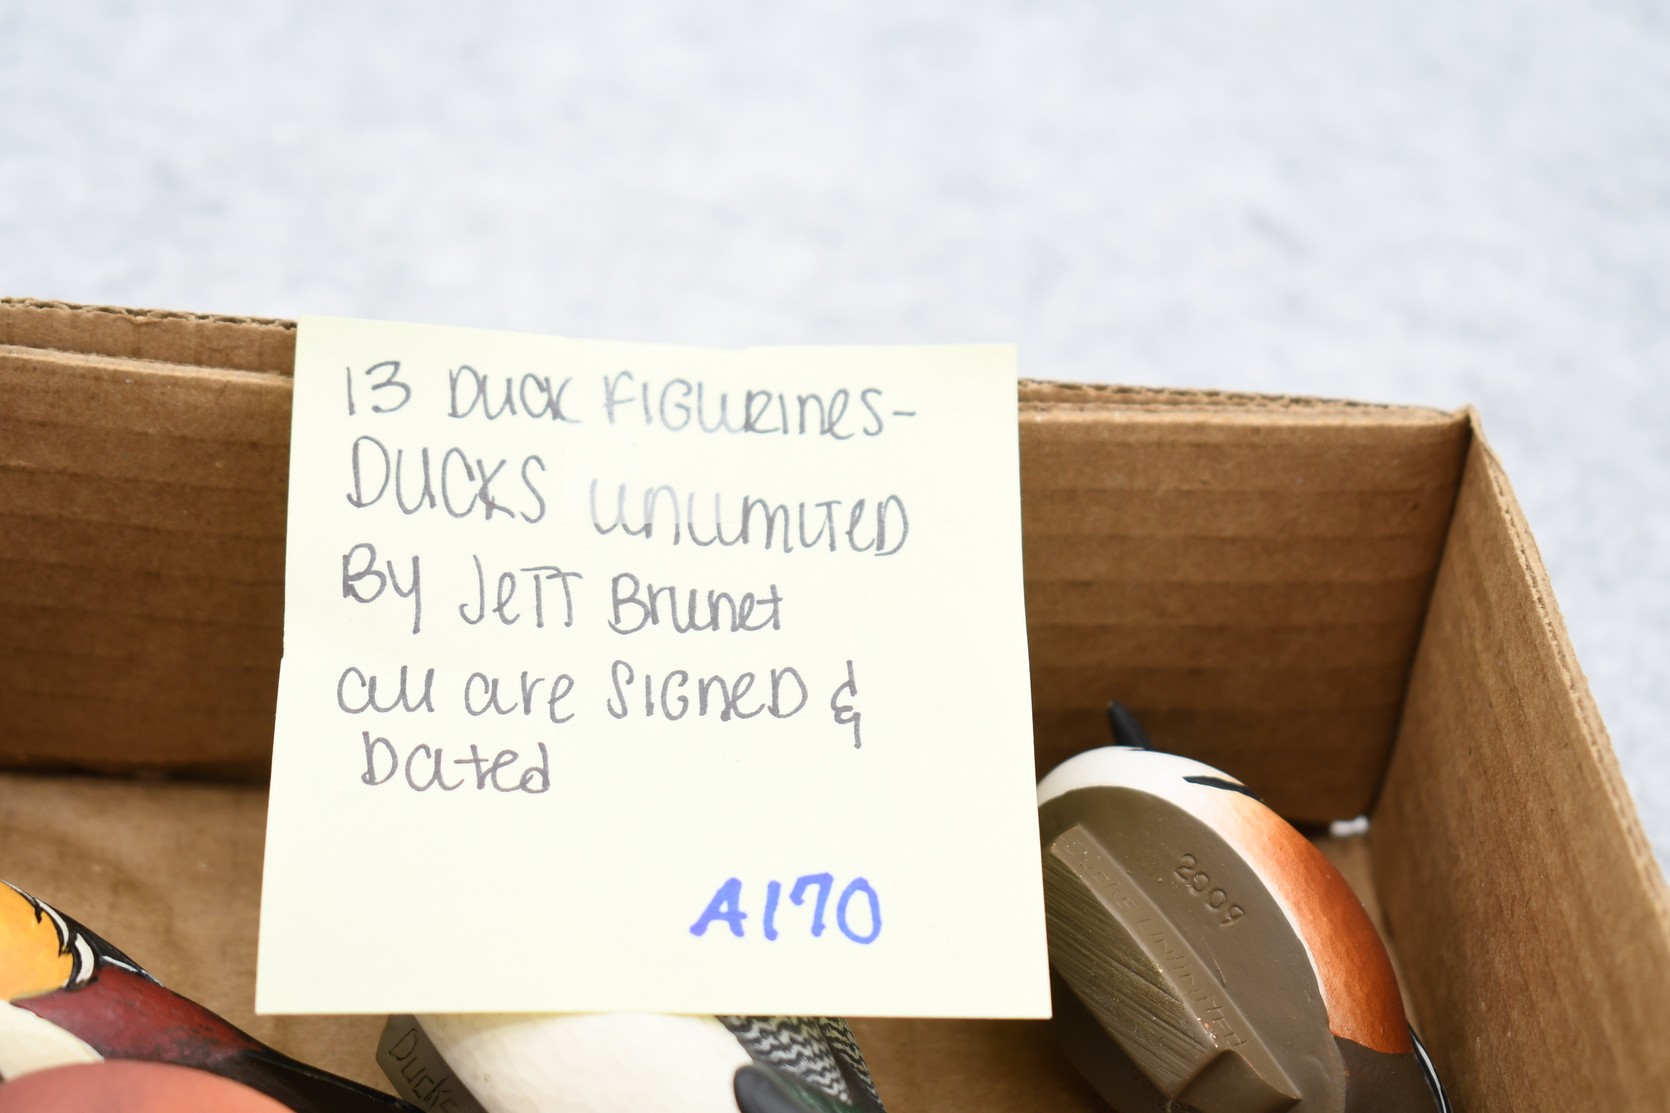 13 DUCK FIGURINES-
DUCKS UNLIMITED
BY JETT Brunet
all are SIGNED &
Dated
A170
2009
DUCKS UNLIMITED
Ducks